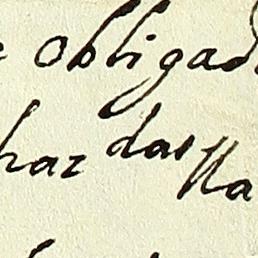 obligad
har das Na